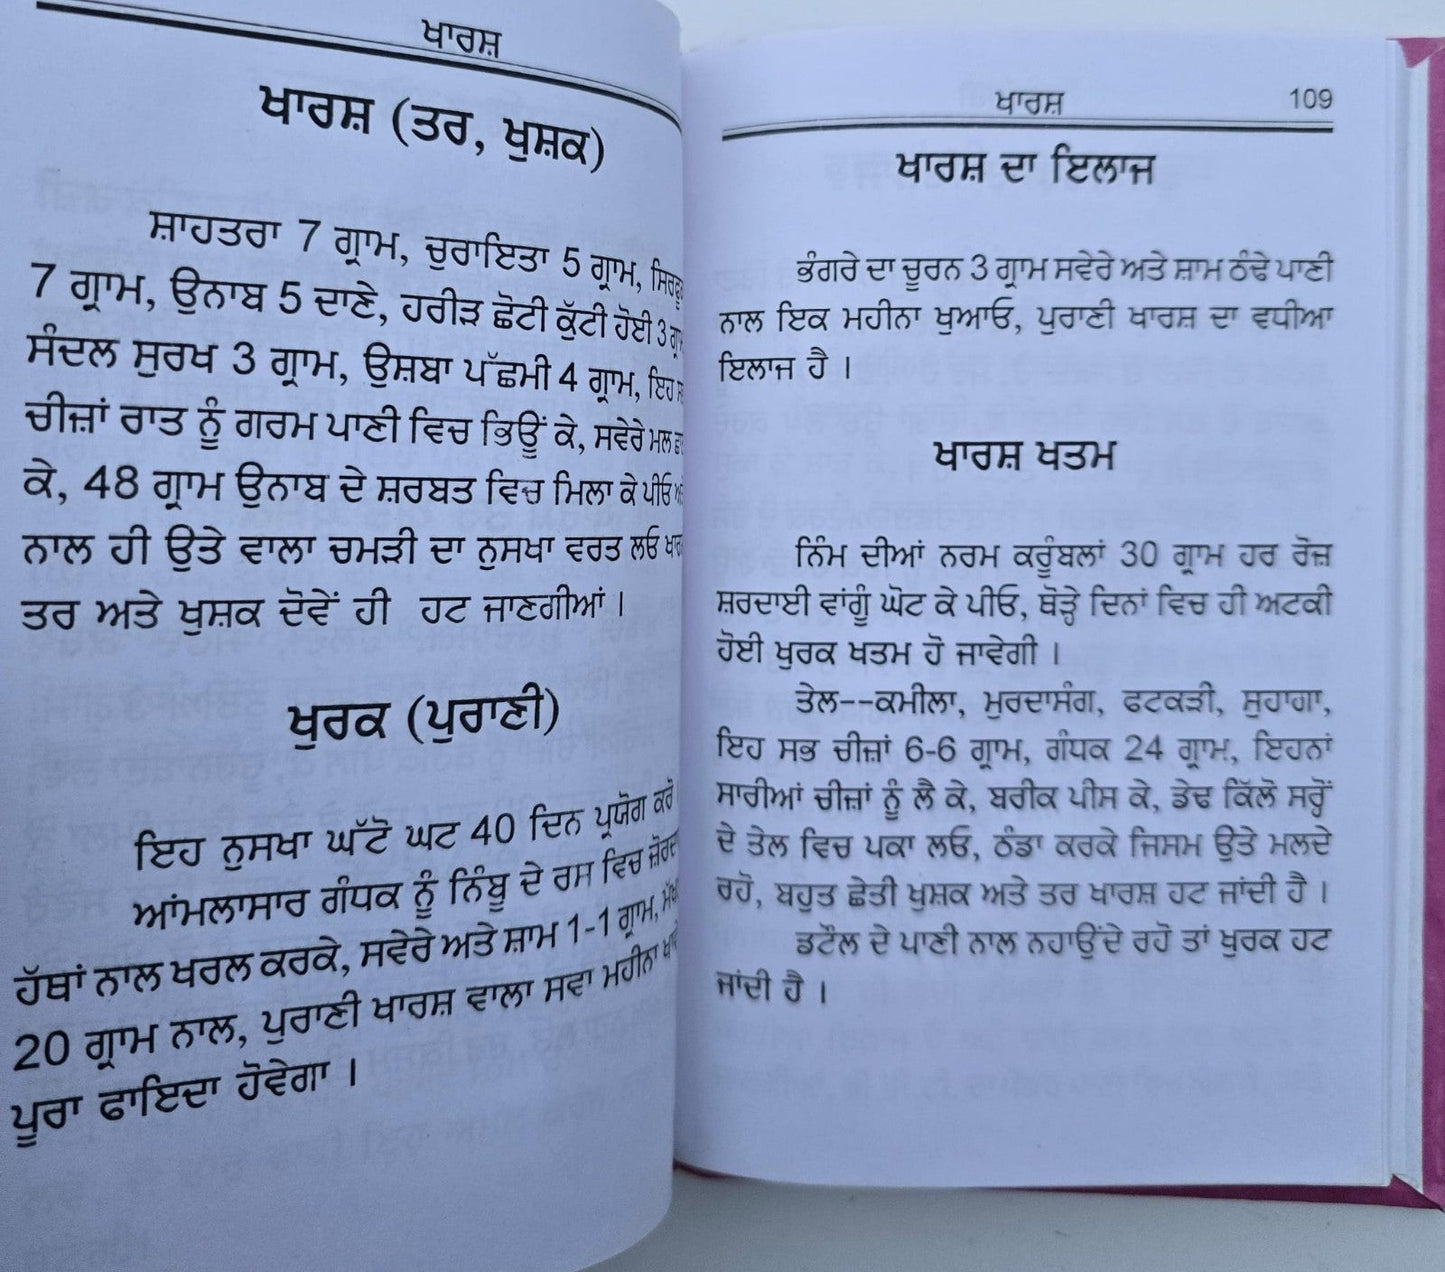 ਖਾਰਸ਼
ਖਾਰਸ਼ (ਤਰ, ਖੁਸ਼ਕ)
ਸ਼ਾਹਤਰਾ 7 ਗ੍ਰਾਮ, ਚੁਰਾਇਤਾ 5 ਗ੍ਰਾਮ,
7 ਗ੍ਰਾਮ, ਉਨਾਬ 5 ਦਾਣੇ, ਹਰੀੜ ਛੋਟੀ ਕੁੱਟੀ ਹੋਈ 3
ਸੰਦਲ ਸੁਰਖ 3 ਗ੍ਰਾਮ, ਉਸ਼ਬਾ ਪੱਛਮੀ 4 ਗ੍ਰਾਮ, ਇਹ
ਚੀਜ਼ਾਂ ਰਾਤ ਨੂੰ ਗਰਮ ਪਾਣੀ ਵਿਚ ਭਿਉਂ ਕੇ, ਸਵੇਰੇ ਮਲ
ਕੇ, 48 ਗ੍ਰਾਮ ਉਨਾਬ ਦੇ ਸ਼ਰਬਤ ਵਿਚ ਮਿਲਾ ਕੇ ਪੀਓ
ਨਾਲ ਹੀ ਉਤੇ ਵਾਲਾ ਚਮੜੀ ਦਾ ਨੁਸਖਾ ਵਰਤ ਲਓ
ਤਰ ਅਤੇ ਖੁਸ਼ਕ ਦੋਵੇਂ ਹੀ ਹਟ ਜਾਣਗੀਆਂ ।
ਖੁਰਕ (ਪੁਰਾਣੀ)
ਇਹ ਨੁਸਖਾ ਘੱਟੋ ਘਟ 40 ਦਿਨ ਪ੍ਰਯੋਗ ਕਰੋ
ਆਂਮਲਾਸਾਰ ਗੰਧਕ ਨੂੰ ਨਿੰਬੂ ਦੇ ਰਸ ਵਿਚ
ਹੱਥਾਂ ਨਾਲ ਖਰਲ ਕਰਕੇ, ਸਵੇਰੇ ਅਤੇ ਸ਼ਾਮ 1-1 ਗ੍ਰਾਮ,
20 ਗ੍ਰਾਮ ਨਾਲ, ਪੁਰਾਣੀ ਖਾਰਸ਼ ਵਾਲਾ ਸਵਾ ਮਹੀਨਾ
ਪੂਰਾ ਫਾਇਦਾ ਹੋਵੇਗਾ ।
ਖਾਰਸ਼ 109
ਖਾਰਸ਼ ਦਾ ਇਲਾਜ
ਭੰਗਰੇ ਦਾ ਚੂਰਨ 3 ਗ੍ਰਾਮ ਸਵੇਰੇ ਅਤੇ ਸ਼ਾਮ ਠੰਢੇ ਪਾਣੀ
ਨਾਲ ਇਕ ਮਹੀਨਾ ਖੁਆਓ, ਪੁਰਾਣੀ ਖਾਰਸ਼ ਦਾ ਵਧੀਆ
ਇਲਾਜ ਹੈ ।
ਖਾਰਸ਼ ਖਤਮ
ਨਿੰਮ ਦੀਆਂ ਨਰਮ ਕਰੂੰਬਲਾਂ 30 ਗ੍ਰਾਮ ਹਰ ਰੋਜ਼
ਸ਼ਰਦਾਈ ਵਾਂਗੂੰ ਘੋਟ ਕੇ ਪੀਓ, ਥੋੜ੍ਹੇ ਦਿਨਾਂ ਵਿਚ ਹੀ ਅਟਕੀ
ਹੋਈ ਖੁਰਕ ਖਤਮ ਹੋ ਜਾਵੇਗੀ ।
ਤੇਲ--ਕਮੀਲਾ, ਮੁਰਦਾਸੰਗ, ਫਟਕੜੀ, ਸੁਹਾਗਾ,
ਇਹ ਸਭ ਚੀਜ਼ਾਂ 6-6 ਗ੍ਰਾਮ, ਗੰਧਕ 24 ਗ੍ਰਾਮ, ਇਹਨਾਂ
ਸਾਰੀਆਂ ਚੀਜ਼ਾਂ ਨੂੰ ਲੈ ਕੇ, ਬਰੀਕ ਪੀਸ ਕੇ, ਡੇਢ ਕਿੱਲੋ ਸਰ੍ਹੋਂ
ਦੇ ਤੇਲ ਵਿਚ ਪਕਾ ਲਓ, ਠੰਡਾ ਕਰਕੇ ਜਿਸਮ ਉਤੇ ਮਲਦੇ
ਰਹੋ, ਬਹੁਤ ਛੇਤੀ ਖੁਸ਼ਕ ਅਤੇ ਤਰ ਖਾਰਸ਼ ਹਟ ਜਾਂਦੀ ਹੈ ।
ਡਟੌਲ ਦੇ ਪਾਣੀ ਨਾਲ ਨਹਾਉਂਦੇ ਰਹੋ ਤਾਂ ਖੁਰਕ ਹਟ
ਜਾਂਦੀ ਹੈ ।